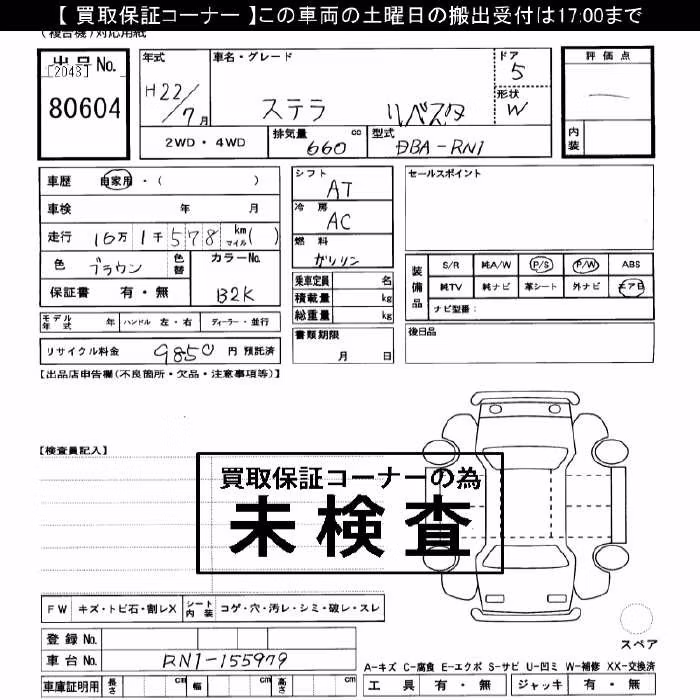 【 買取保証コーナー 】この車両の土曜日の搬出受付は17:00まで
(複合機)対応用紙
出品No.
[2043]
80604
年式
H22/7月
車名・グレード
ステラ リベスタ
ドア
5
形状
W
評価点
内装
2WD・4WD
排気量 660 cc
型式 DBA-RN1
車歴 自家用・( )
車検 年 月
走行 16万1千578 km マイル( )
色 ブラウン
色替
カラーNo.
B2K
保証書 有・無
シフト
AT
冷房
AC
燃料
ガソリン
乗車定員 名
積載量 kg
総重量 kg
書類期限
月 日
セールスポイント
装備品
S/R 純A/W P/S P/W ABS
純TV 純ナビ 革シート 外ナビ エアB
ナビ型番:
後日品
モデル年式 年 ハンドル 左・右 ディーラー・並行
リサイクル料金 9850 円 預託済
【出品店申告欄(不良箇所・欠品・注意事項等)】
【検査員記入】
買取保証コーナーの為
未検査
FW キズ・トビ石・割レX シート内装 コゲ・穴・汚レ・シミ・破レ・スレ
登録No.
車台No. RN1-155979
車庫証明用 長さ cm 幅 cm 高さ cm
スペア
A-キズ C-腐食 E-エクボ S-サビ U-凹ミ W-補修 XX-交換済
工具 有・無 ジャッキ 有・無